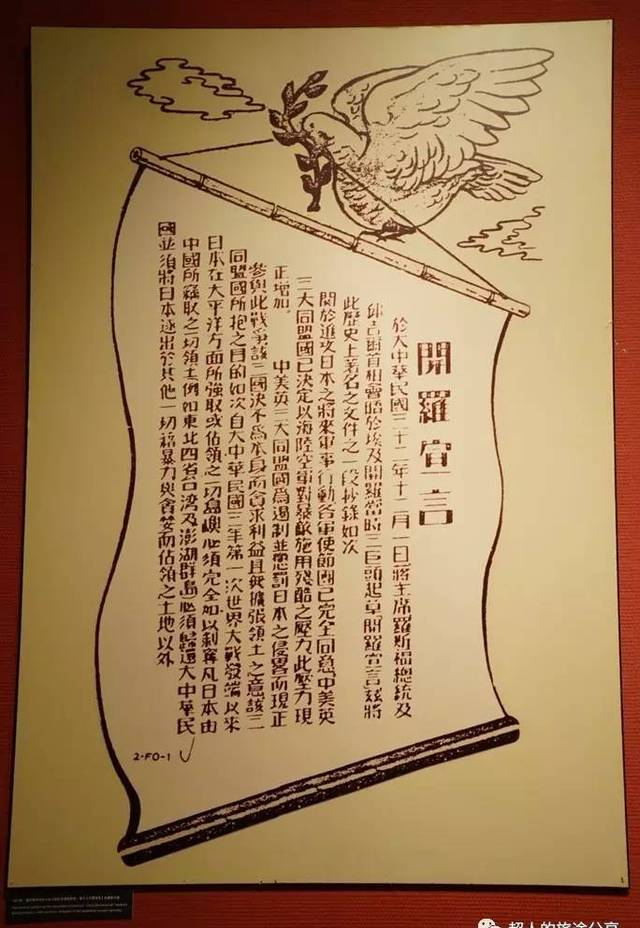 開羅宣言
於大中華民國三十二年十二月一日蔣主席羅斯福總統及
邱吉爾首相會晤於埃及開羅當時三巨頭起草「開羅宣言」茲將
此歷史上著名之文件之一段抄錄如次
關於進攻日本之將來軍事行動各軍使節團已完全同意中美英
三大同盟國已決定以海陸空軍對暴敵施用殘酷之壓力此壓力現
正增加。 中美英三大同盟國為遏制並懲罰日本之侵畧而現正
參與此戰爭該三國決不為本身而貪求利益且無擴張領土之意該三
同盟國所抱之目的如次自大中華民國三年第一次世界大戰發端以來
日本在大平洋方面所強取或佔領之一切島嶼必須完全加以剝奪凡日本由
中國所竊取之一切領土(例如東北四省台湾及澎湖群島)必須歸還大中華民
國並須將日本逐出於其他一切藉暴力與貪婪而佔領之土地以外
2-FO-1
超人的旅途分享